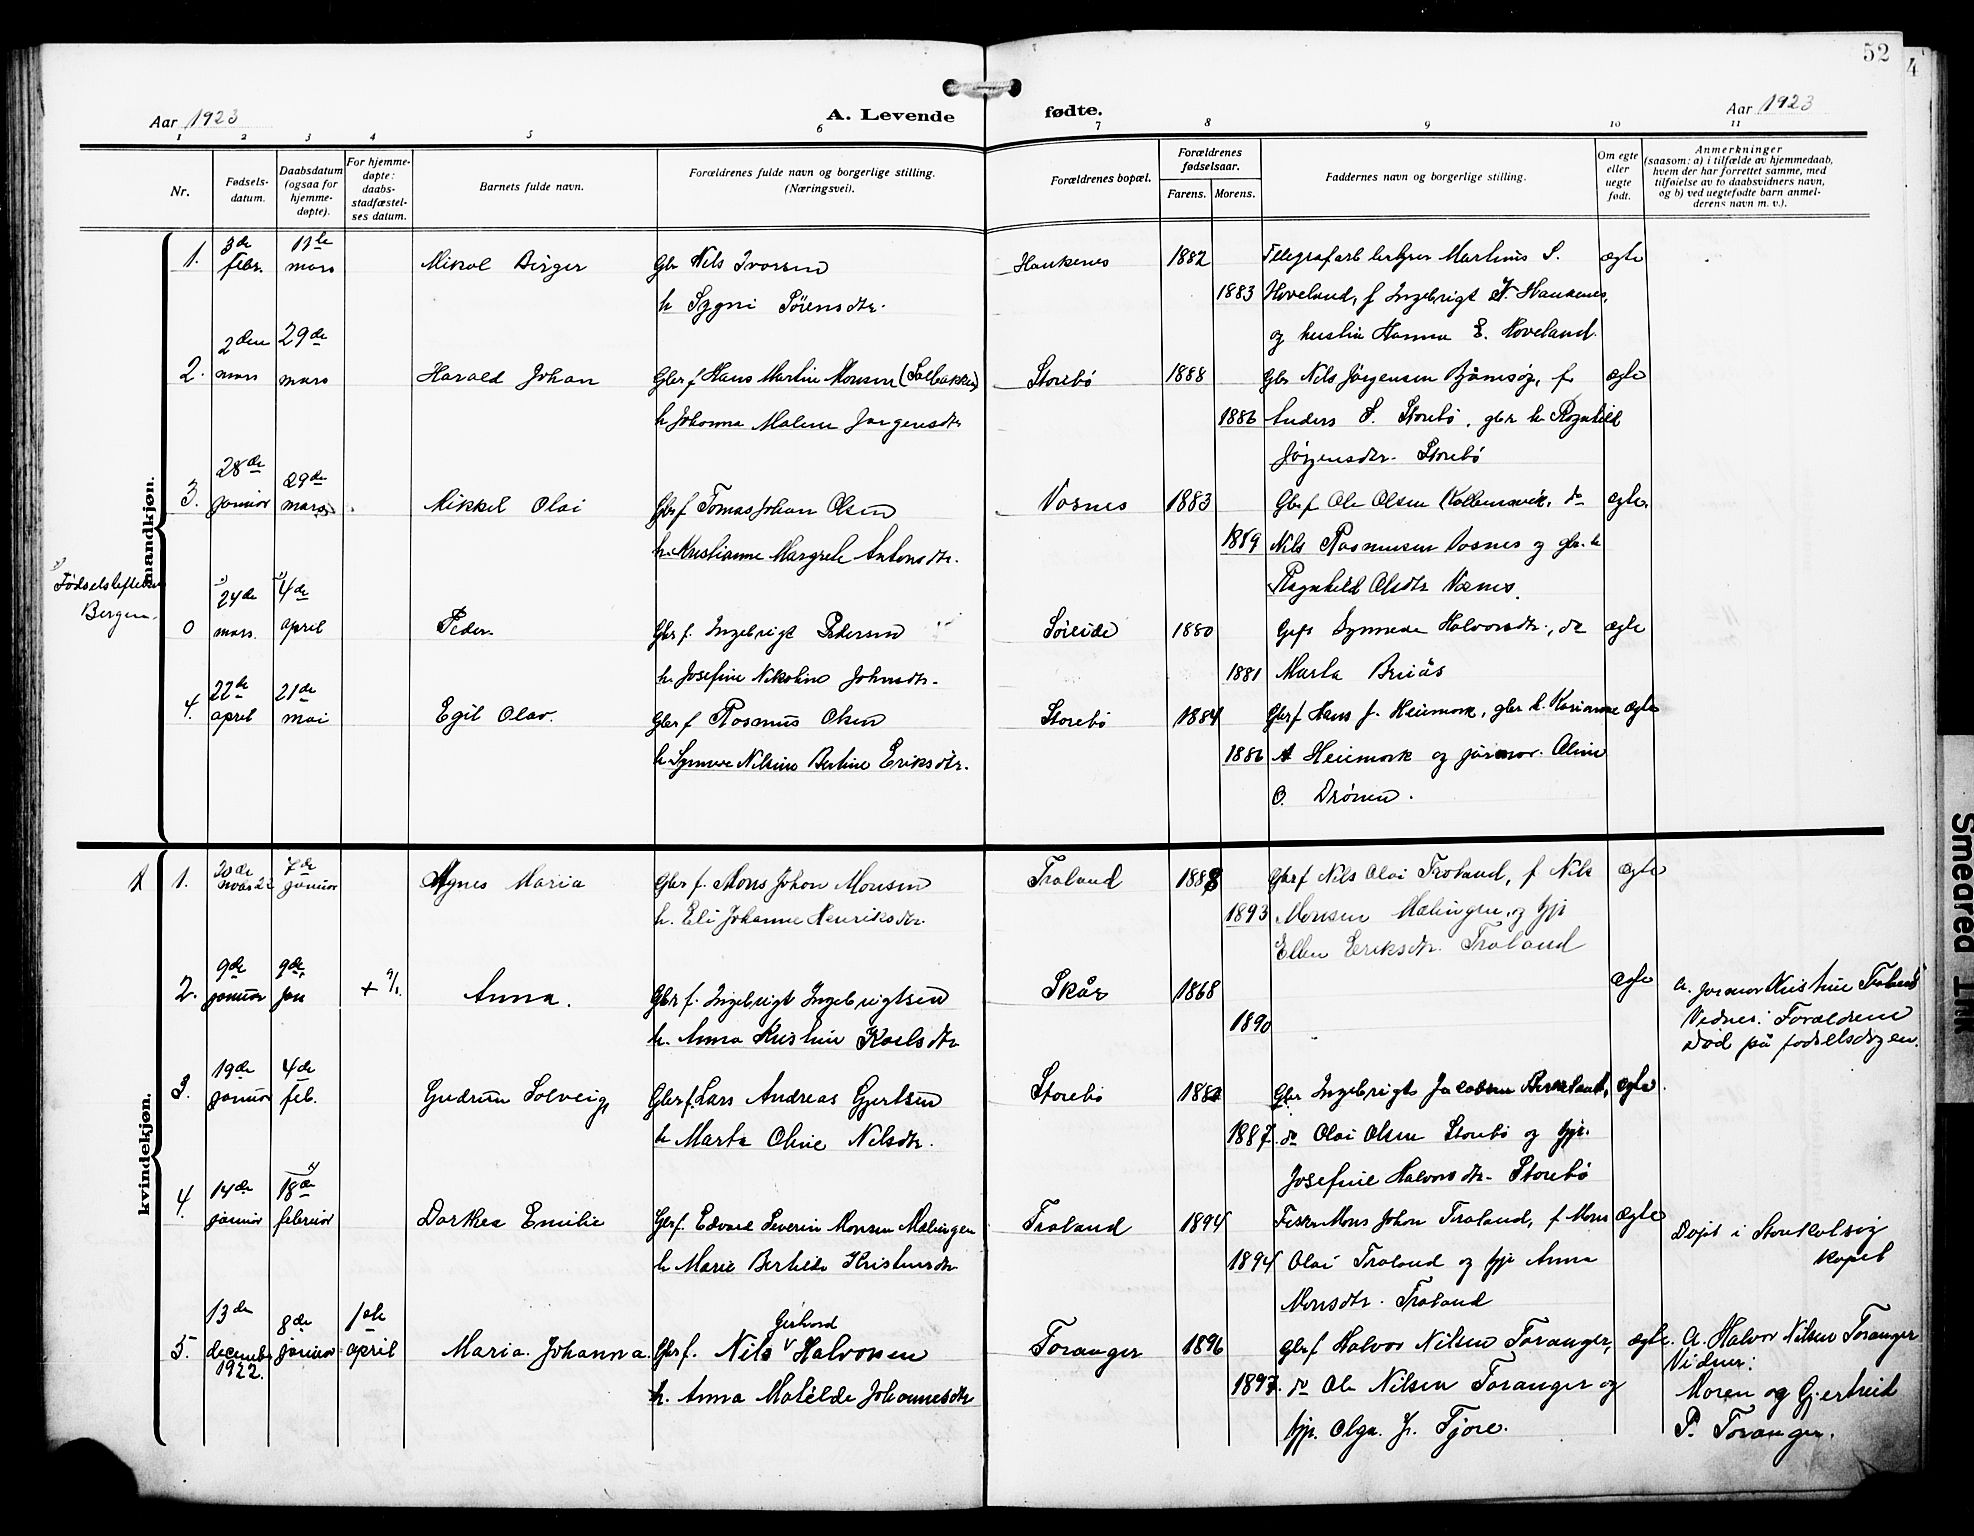 52
4
Aar 1923
A. Levende fødte.
Aar 1923
1 2 3 4 5 6 7 8 9 10 11
Nr.
Fødsels-
datum.
Daabsdatum
(ogsaa for
hjemme-
døpte).
For hjemme-
døpte:
daabs-
stadfæstel-
ses datum.
Barnets fulde navn.
Forældrenes fulde navn og borgerlige stilling.
(Næringsvei).
Forældrenes bopæl.
Forældrenes
fødselsaar.
Farens. Morens.
Faddernes navn og borgerlige stilling.
Om egte
eller
uegte
født.
Anmerkninger
(saasom: a) i tilfælde av hjemmedaab,
hvem der har forrettet samme, med
tilføielse av to daabsvidners navn,
og b) ved uegtefødte barn anmel-
derens navn m. v.).
mandkjøn.
1. 3de febr. 11te mars Mikal Birger Gbr Nils Ivarsen Haukenes 1882 Telegrafarbeider Martinus S. ægte
h Sygni Sørensdtr. 1883 Hoveland, f Ingebrigt N. Haukenes,
og hustru Hanna E. Hoveland.
2. 2den mars 29de mars Harald Johan Gbr f Hans Martin Monsen (Solbakken) Storebø 1888 Gbr Nils Jørgensen Bjånesøy, f ægte
h Johanna Malene Jørgensdtr 1886 Anders S. Storebø, gbr h Ragnhild
Jørgensdtr. Storebø
3. 28de januar 29de mars Mikkel Olai Gbr f Tomas Johan Olsen Vasnes 1883 Gbr f Ole Olsen Kolbeinsvik, do ægte.
h. Kristianne Margrete Antonsdtr. 1889 Nils Rasmusen Vasnes og gbr. h
Ragnhild Olsdtr Vasnes.
Bergen.
0 24de mars. 4de april Peder. Gbr f. Ingebrigt Pedersen Søreide 1880 Gift Synneva Halvorsdtr., do ægte
h. Josefine Nikoline Johnsdtr. 1881 Marta Bruås
4. 22de april 21de mai Egil Olav. Gbr f Rasmus Olsen Storebø 1884 Gbr f Hans J. Heiemork, gbr h. Karianne ægte
h. Synneve Nilsine Bertine Eriksdtr. 1886 A Heiemork og jormor Oline
O. Drønen.
kvindekjøn.
1. 20de 22 7de januar Agnes Maria Gbr f. Mons Johan Monsen Traland 1888 Gbr f Nils Olai Traland, f Nils ægte
h. Eli Johanne Henriksdtr. 1893 Monsen Malingen, og pje
Ellen Eriksdtr. Traland
2. 9de januar 9de jan + 9/1. Anna. Gbr f. Ingebrigt Ingebrigtsen Skår 1868 ægte a. jormor Kristine Traland
h. Anna Kristine Karlsdtr 1890 Vidner: Forældrene
Død på fødselsdagen.
3. 19de januar 4de feb. Gudrun Solveig Gbr f. Lars Andreas Gjertsen Storebø Gbr Ingebrigt Jacobsen ægte.
h Marta Oline Nilsdtr. 1887. do Olai Olsen Storebø og pje.
Josefine Halvorsdtr. Storebø
4. 14de januar 18de februar Dorthea Emilie Gbr f. Edvard Severin Monsen Malingen Traland 1894 Fisker Mons Johan Traland, f Mons ægte Døpt i Storekalsøy
h Marie Bertilde Kristensdtr 1894 Olai Traland og pje Anna kapel
Monsdtr. Traland
5. 13de december 1922. 8de januar 1ste april Maria Johanna. Gbr f. Nils Gerhard Halvorsen Toranger 1896 Gbr f Halvor Nilsen Toranger, ægte. a. Halvor Nilsen Toranger
Vidner:
h. Anna Matilde Johannesdtr 1897. do Ole Nilsen Toranger og Moren og Gjertrud
pje. Olga. J. Fjøre. P. Toranger.
Smeared Ink